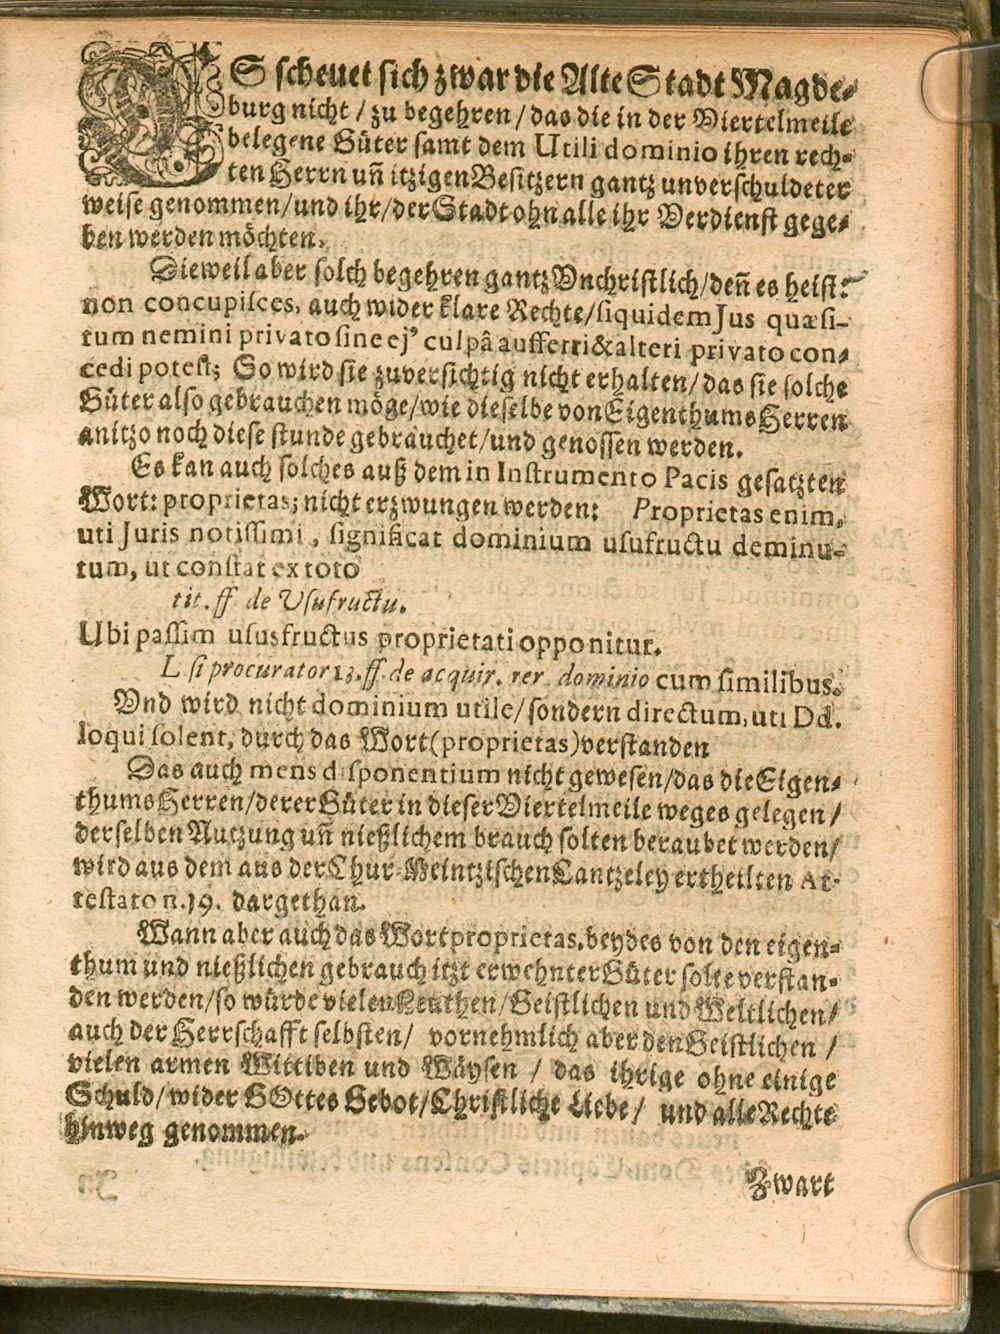 ES scheuet sich zwar die Alte Stadt Magde-
burg nicht / zu begehren / das die in der Viertelmeile
belegene Güter samt dem Utili dominio ihren rech-
ten Herrn uñ itzigen Besitzern gantz unverschuldeter
weise genommen / und ihr / der Stadt ohn alle ihr Verdienst gege-
ben werden möchten.
Dieweil aber solch begehren gantz Vnchristlich / deñ es heist:
non concupisces, auch wider klare Rechte / siquidem Jus quæsi-
tum nemini privato sine ej' culpâ aufferri & alteri privato con-
cedi potest; So wird sie zuversichtig nicht erhalten / das sie solche
Güter also gebrauchen möge / wie dieselbe von Eigenthums Herren
anitzo noch diese stunde gebrauchet / und genossen werden.
Es kan auch solches auß dem in Instrumento Pacis gesatzten
Wort: proprietas; nicht erzwungen werden: Proprietas enim,
uti Juris notissimi, significat dominium usufructu deminu-
tum, ut constat ex toto
tit. ff de Usufructu.
Ubi passim ususfructus proprietati opponitur.
L si procurator 13. ff. de acquir. rer. dominio cum similibus.
Vnd wird nicht dominium utile / sondern directum, uti Dd.
loqui solent, durch das Wort (proprietas) verstanden
Das auch mens disponentium nicht gewesen / das die Eigen-
thums Herren / derer Güter in dieser Viertelmeile weges gelegen /
derselben Nutzung uñ nießlichem brauch solten beraubet werden /
wird aus dem aus der Chur-Meintzischen Cantzeley ertheilten At-
testato n. 19. dargethan.
Wann aber auch das Wort proprietas, beydes von den eigen-
thum und nießlichen gebrauch itzt erwehnter Güter solte verstan-
den werden / so würde vielen Leuthen / Geistlichen und Weltlichen /
auch der Herrschafft selbsten / vornehmlich aber den Geistlichen /
vielen armen Wittiben und Wäysen / das ihrige ohne einige
Schuld / wider GOttes Gebot / Christliche Liebe / und alle Rechte
hinweg genommen.
Zwart